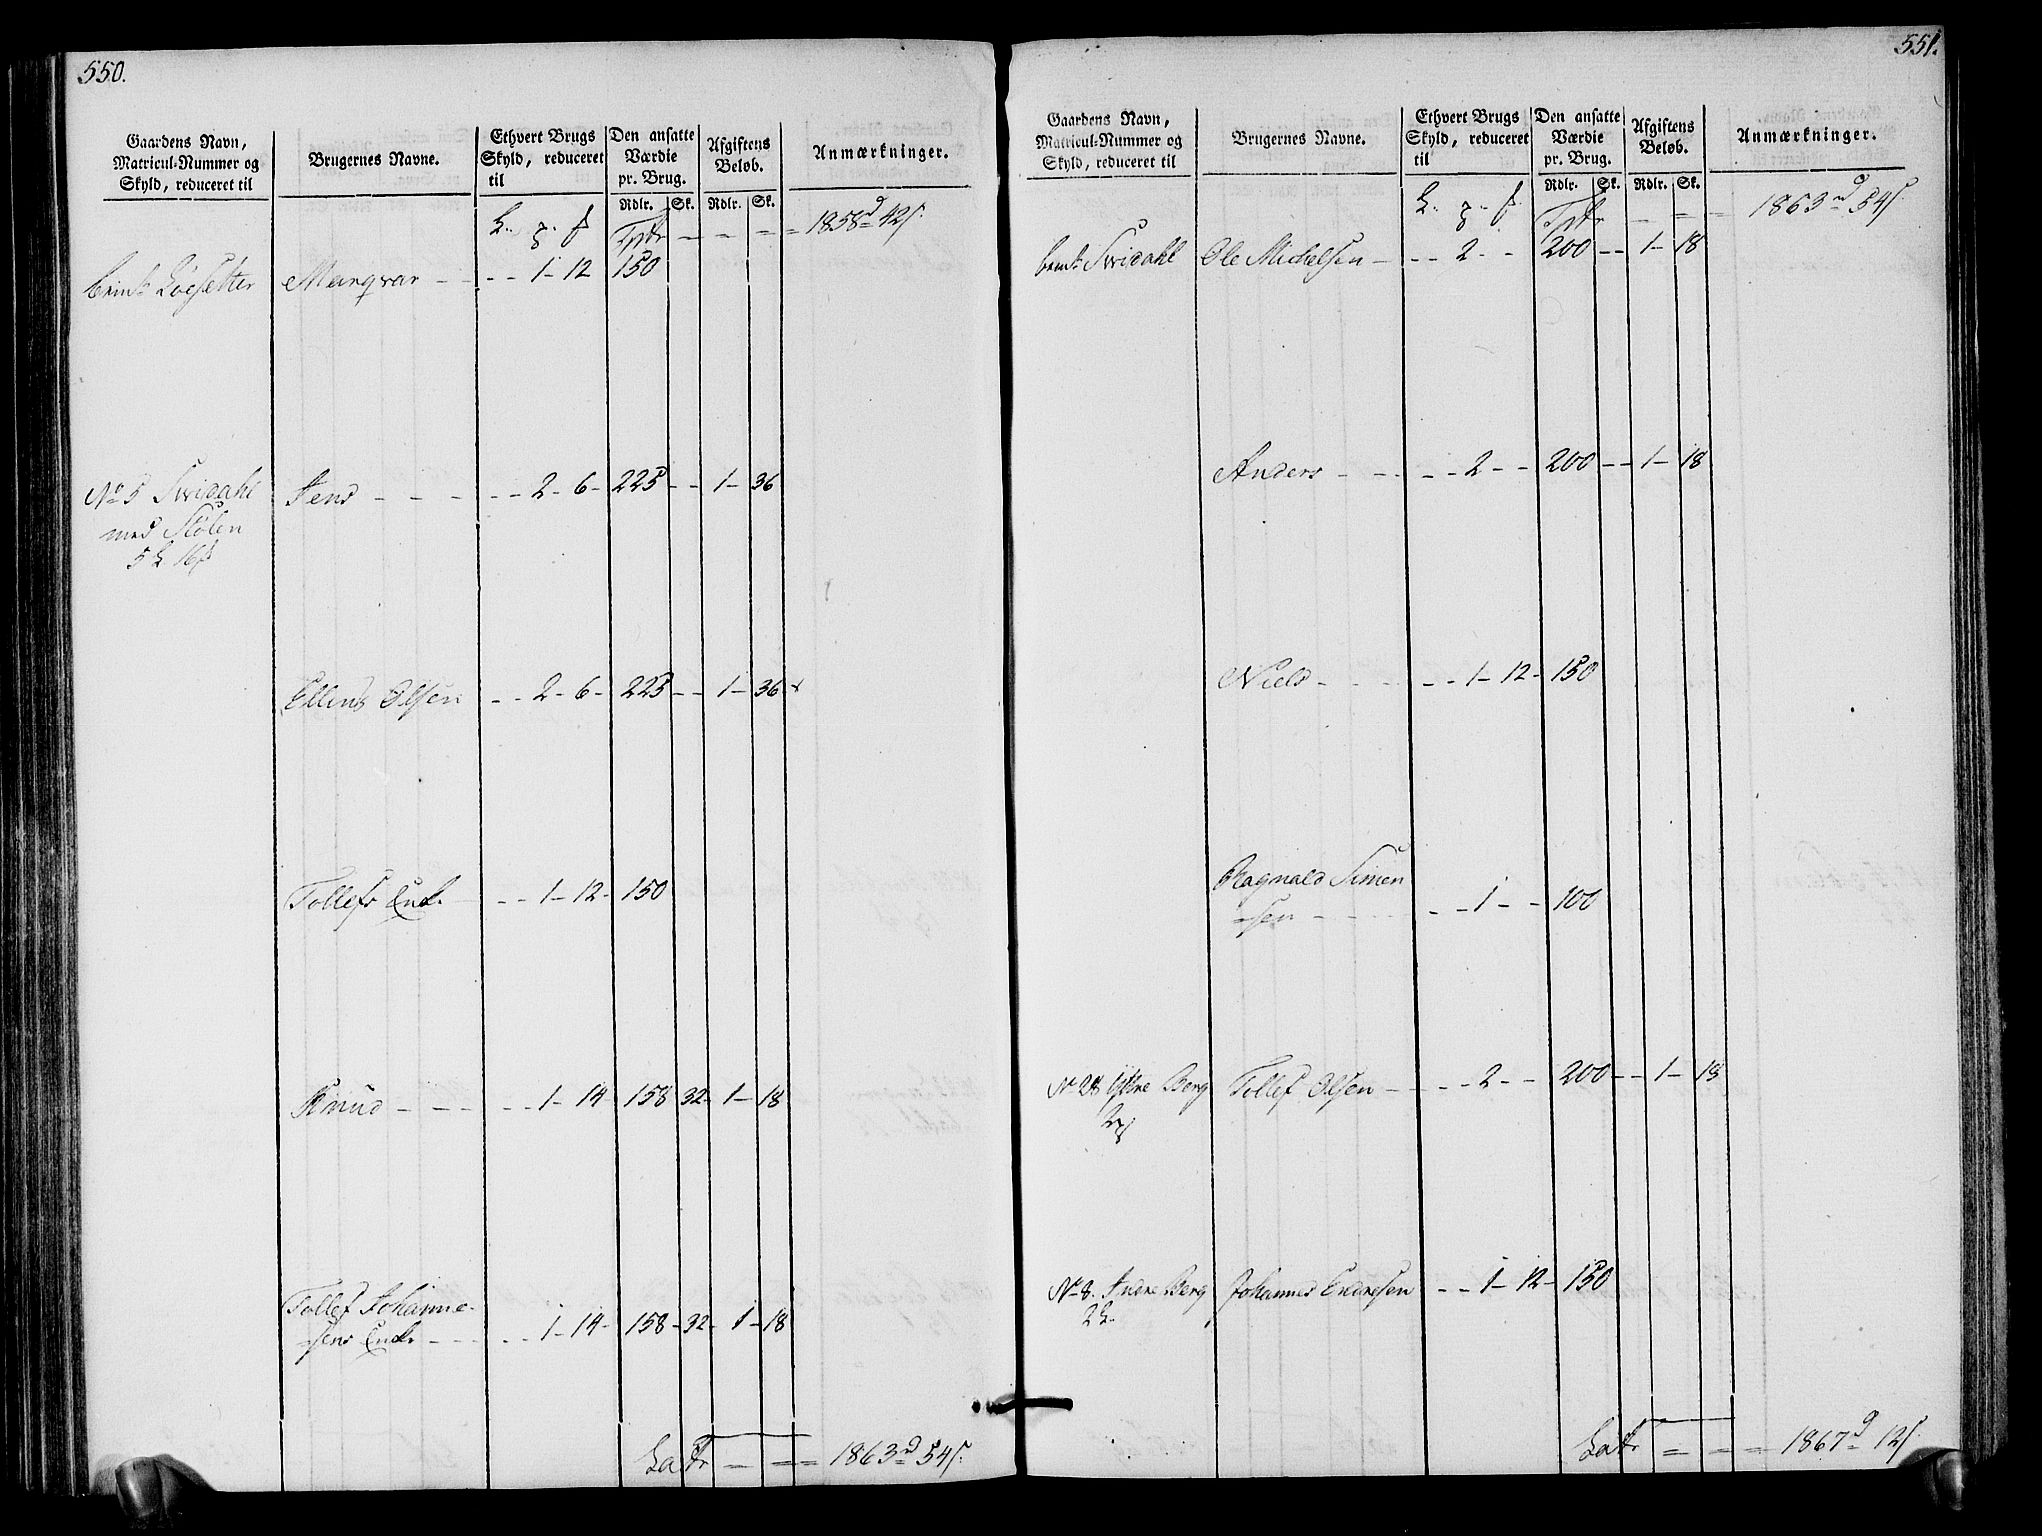 550.
Gaardens Navn,
Matricul-Nummer og
Skyld, reduceret til
Brugernes Navne.
Ethvert Brugs
Skyld, reduceret
til
Den ansatte
Værdie
pr. Brug.
Rdlr. Sk.
Afgiftens
Beløb.
Rdlr. Sk.
Anmærkninger.
Tpt - - - = 1858d 42s.
Løesetter Marqvar - - - - 1 - 12 150
No 5 Svidahl Jens - - - - - 2 - 6 - 225 - - 1 - 36
med Stølen
5 L 16
Ellend Olsen - - 2 - 6 - 225 - - 1 - 36
Tollefs Enk. - - 1 - 12 - 150
Knud - - - - - 1 - 14 158 32 - 1 - 18
Tollef Johanne-
sens Enke - - - - 1 - 14 - 158 - 32 - 1 - 18
Latr - - = 1863d 54s.
551.
Gaardens Navn,
Matricul-Nummer og
Skyld, reduceret til
Brugernes Navne.
Ethvert Brugs
Skyld, reduceret
til
Den ansatte
Værdie
pr. Brug.
Rdlr. Sk.
Afgiftens
Beløb.
Rdlr. Sk.
Anmærkninger.
Tpt - = = 1863d 54s
Svidahl Ole Michelsen - - - 2 - - 200 - - 1 - 18
Anders - - - - - 2 - - 200 - - 1 - 18
Niels - - - - - 1 - 12 - 150
Ragnald Simen
-sen - - - - - 1 - - 100
No 28 Ystre Berg Tollef Olsen - - - 2 - - 200 - - 1 - 18
No 8. Indre Berg Johannes Endresen - - 1 - 12 - 150
2 L.
Latr = - = 1867d 12s.